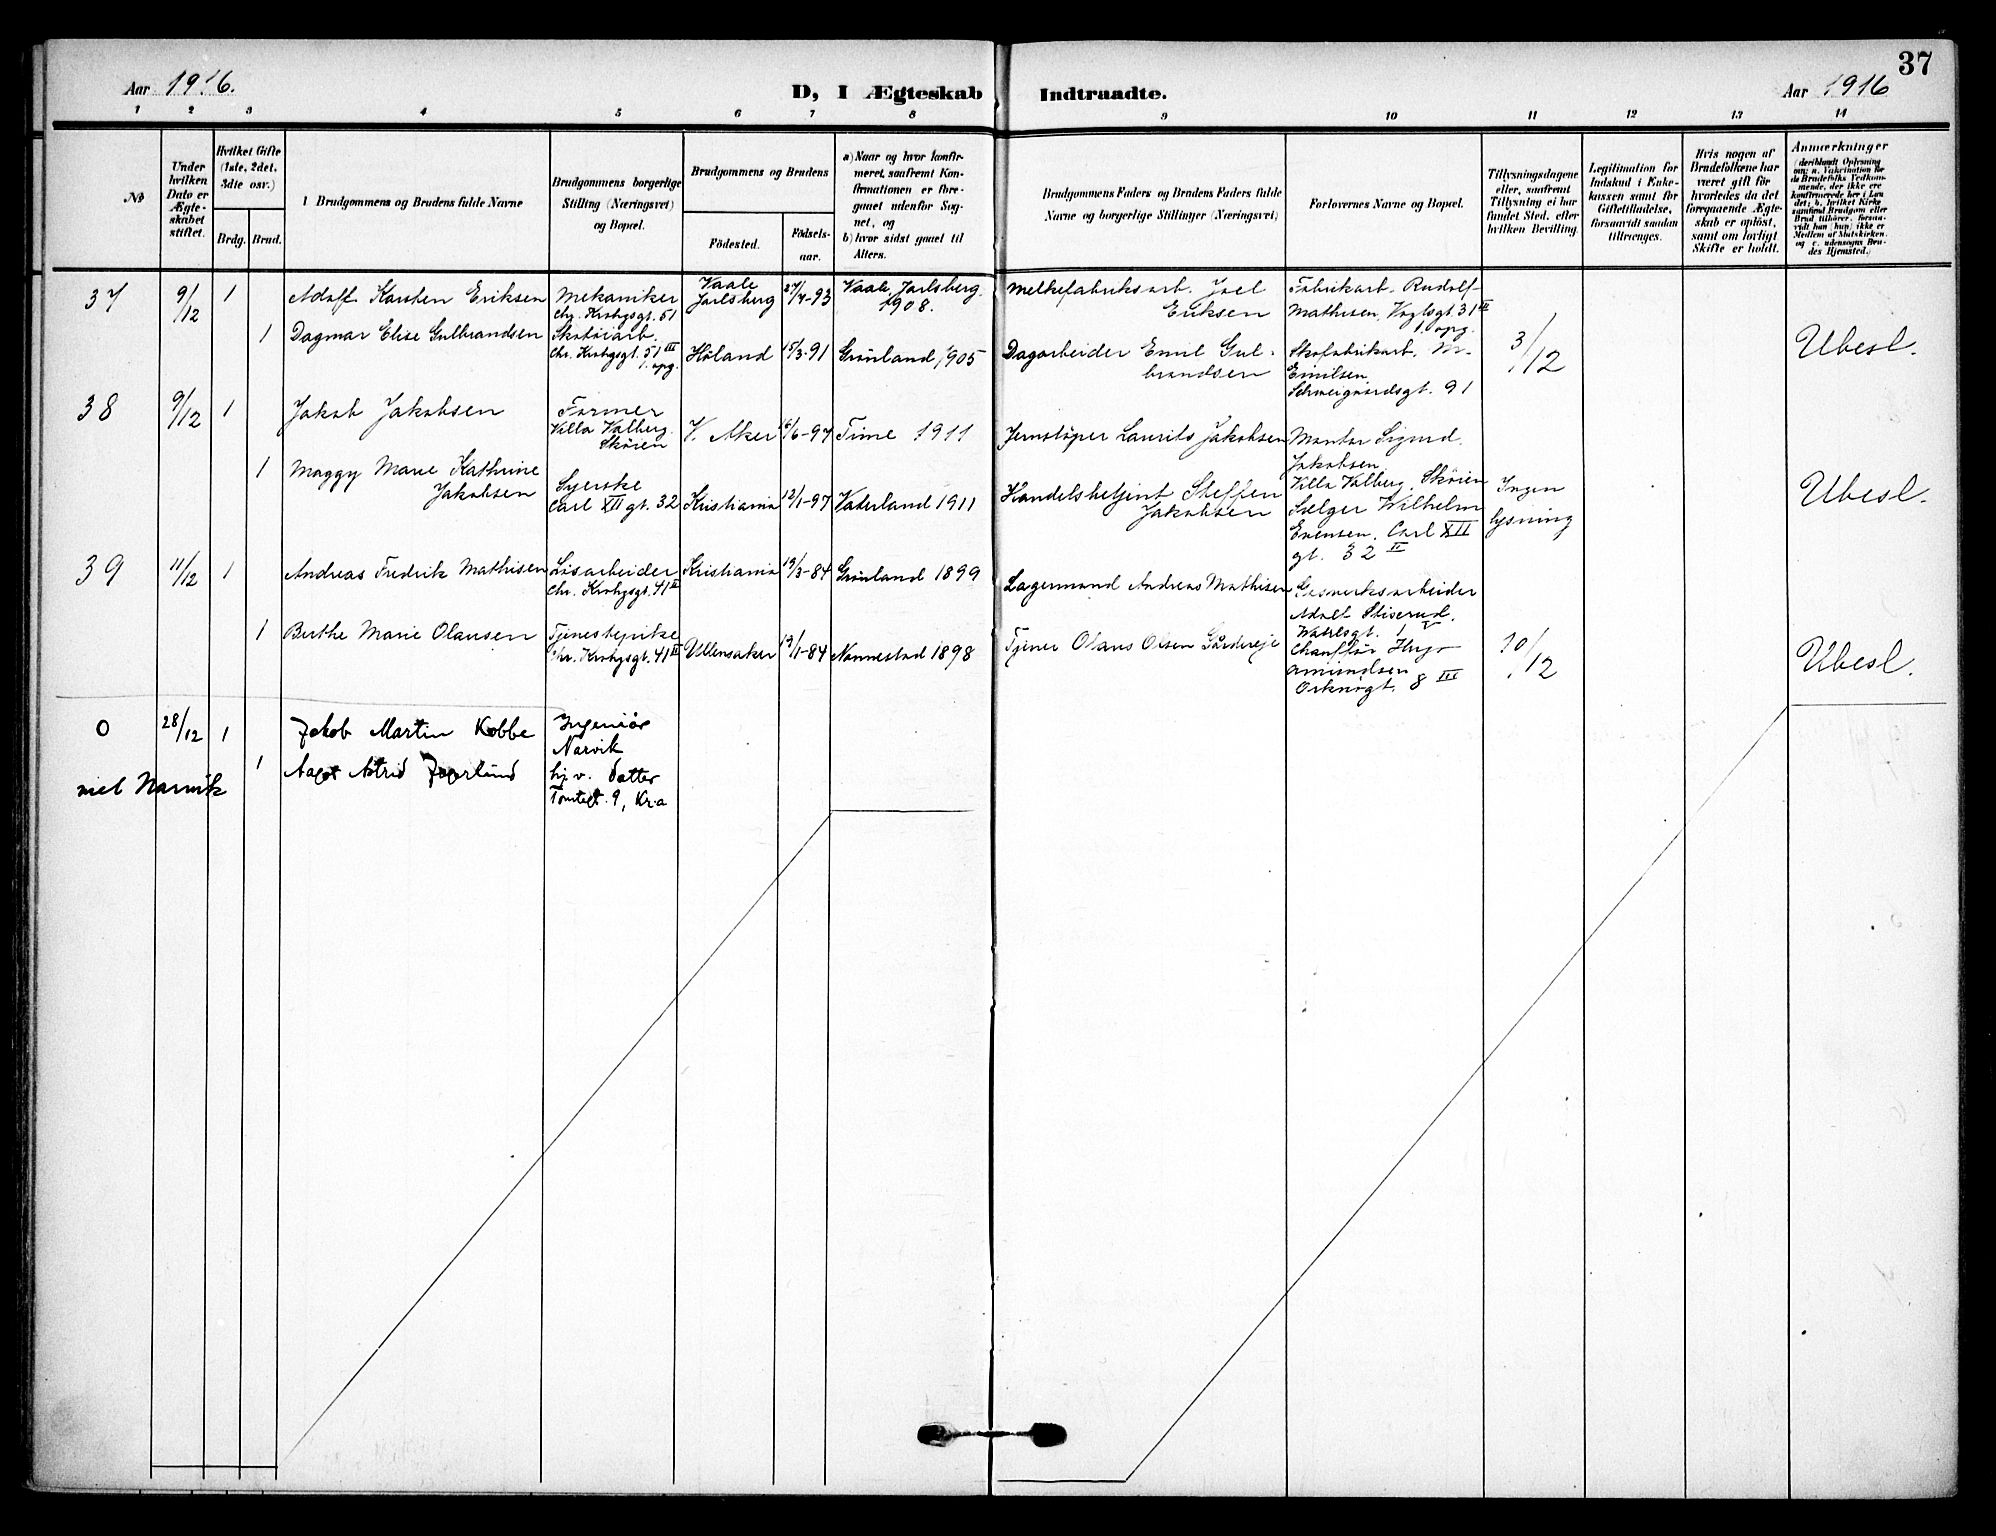 37
Aar 1916.
D, I Ægteskab Indtraadte.
Aar 1916
1 2 3 4 5 6 7 8 9 10 11 12 13 14
No
Under hvilken Dato er Ægte- skabet stiftet.
Hvilket Gifte (1ste, 2det, 3die osv.)
Brdg. Brud.
Brudgommens og Brudens fulde Navne
Brudgommens borgerlige Stilling (Næringsvei) og Bopæl.
Brudgommens og Brudens
Födested.
Födsels- aar.
a) Naar og hvor konfir- meret, saafremt Kon- firmationen er fore- gaaet udenfor Sog- net, og
b) hvor sidst gaaet til Alters.
Brudgommens Faders og Brudens Faders fulde Navne og borgerlige Stillinger (Næringsvei)
Forlovernes Navne og Bopæl.
Tillysningsdagene eller, saafremt Tillysning ei har fundet Sted, efter hvilken Bevilling.
Legitimation for Indskud i Enke- kassen samt for Giftetilladelse, forsaavidt saadan tiltrænges.
Hvis nogen af Brudefolkene har været gift för hvorledes da det foregaaende Ægte- skab er oplöst, samt om lovligt Skifte er holdt.
Anmærkninger
37 9/12 1 Adolf Karsten Eriksen Mekaniker Chr. Krohgsgt. 51 Vaale Jarlsberg 27/7-93 Vaale, Jarlsberg. 1908. Melkefabriksarb. Joel Eriksen Fabrikarb. Rudolf Mathisen, Voglsgt 31 II 1. opg.
1 Dagmar Elise Gulbrandsen Skotøiarb. Chr. Krohgsgt. 51 III 1. opg. Høland 15/3-91 Grønland 1905 Dagarbeider Emil Gul- brandsen Skofabrikarb. M. Emilsen Schweigaardsgt. 91 3/12 Ubesl.
38 9/12 1 Jakob Jakobsen Former Villa Valberg. Skøien V. Aker 16/6-97 Time 1911 Jernstøper Laurits Jakobsen Montør Sigurd Jakobsen Villa Valberg, Skøien
1 Maggy Marie Kathrine Jakobsen Syerske Carl XII gt. 32 Kristiania 12/1-97 Vaterland 1911 Handelsbetjent Steffen Jakobsen Sælger Wilhelm Evensen, Carl XII gt. 32 II Ingen lysning Ubesl.
39 11/12 1 Andreas Fredrik Mathisen Løsarbeider Chr. Krohgsgt. 41 II Kristiania 19/3-84 Grønland 1899 Lagermand Andreas Mathisen Gasverksarbeider Adolf
1 Berthe Marie Olausen Tjenestepike Chr. Krohgsgt. 41 II Ullensaker 19/1-84 Nannestad 1898 Tjener Olaus Olsen Gårdereje Chauffør Hugo Amundsen Orknøgt. 8 III 10/12 Ubesl.
0 28/12 1 Jakob Martin Kobbe Ingeniør Narvik
viet Narvik 1 Aagot Astrid Jagerlund hj.v. datter Tomtegt. 9, Kr.a